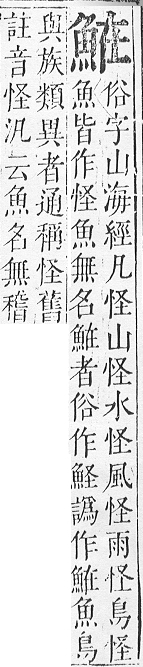 ⿰魚在
俗字山海經凡怪山怪水怪風怪雨怪鳥怪
魚皆作怪魚無名⿰魚在者俗作⿰魚圣譌作⿰魚在魚鳥
與族類異者通稱怪舊
註音怪汎云魚名無稽